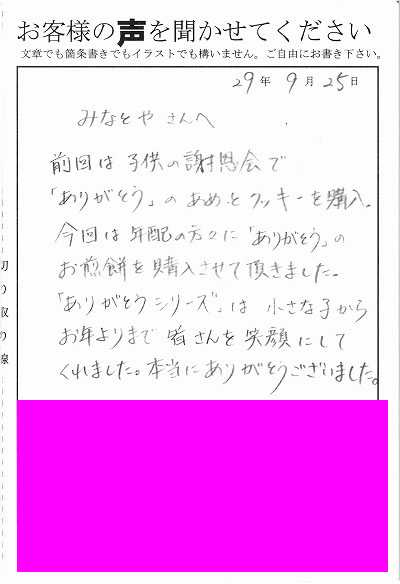 お客様の声を聞かせてください
文章でも箇条書きでもイラストでも構いません。ご自由にお書き下さい。
29年 9月 25日
みなとや さんへ
前回は 子供の謝恩会で
「ありがとう」の あめとクッキーを購入。
今回は年配の方々に「ありがとう」の
お煎餅を購入させて頂きました。
「ありがとうシリーズ」は 小さな子から
お年よりまで 皆さんを笑顔にして
くれました。本当にありがとうございました。
切り取り線